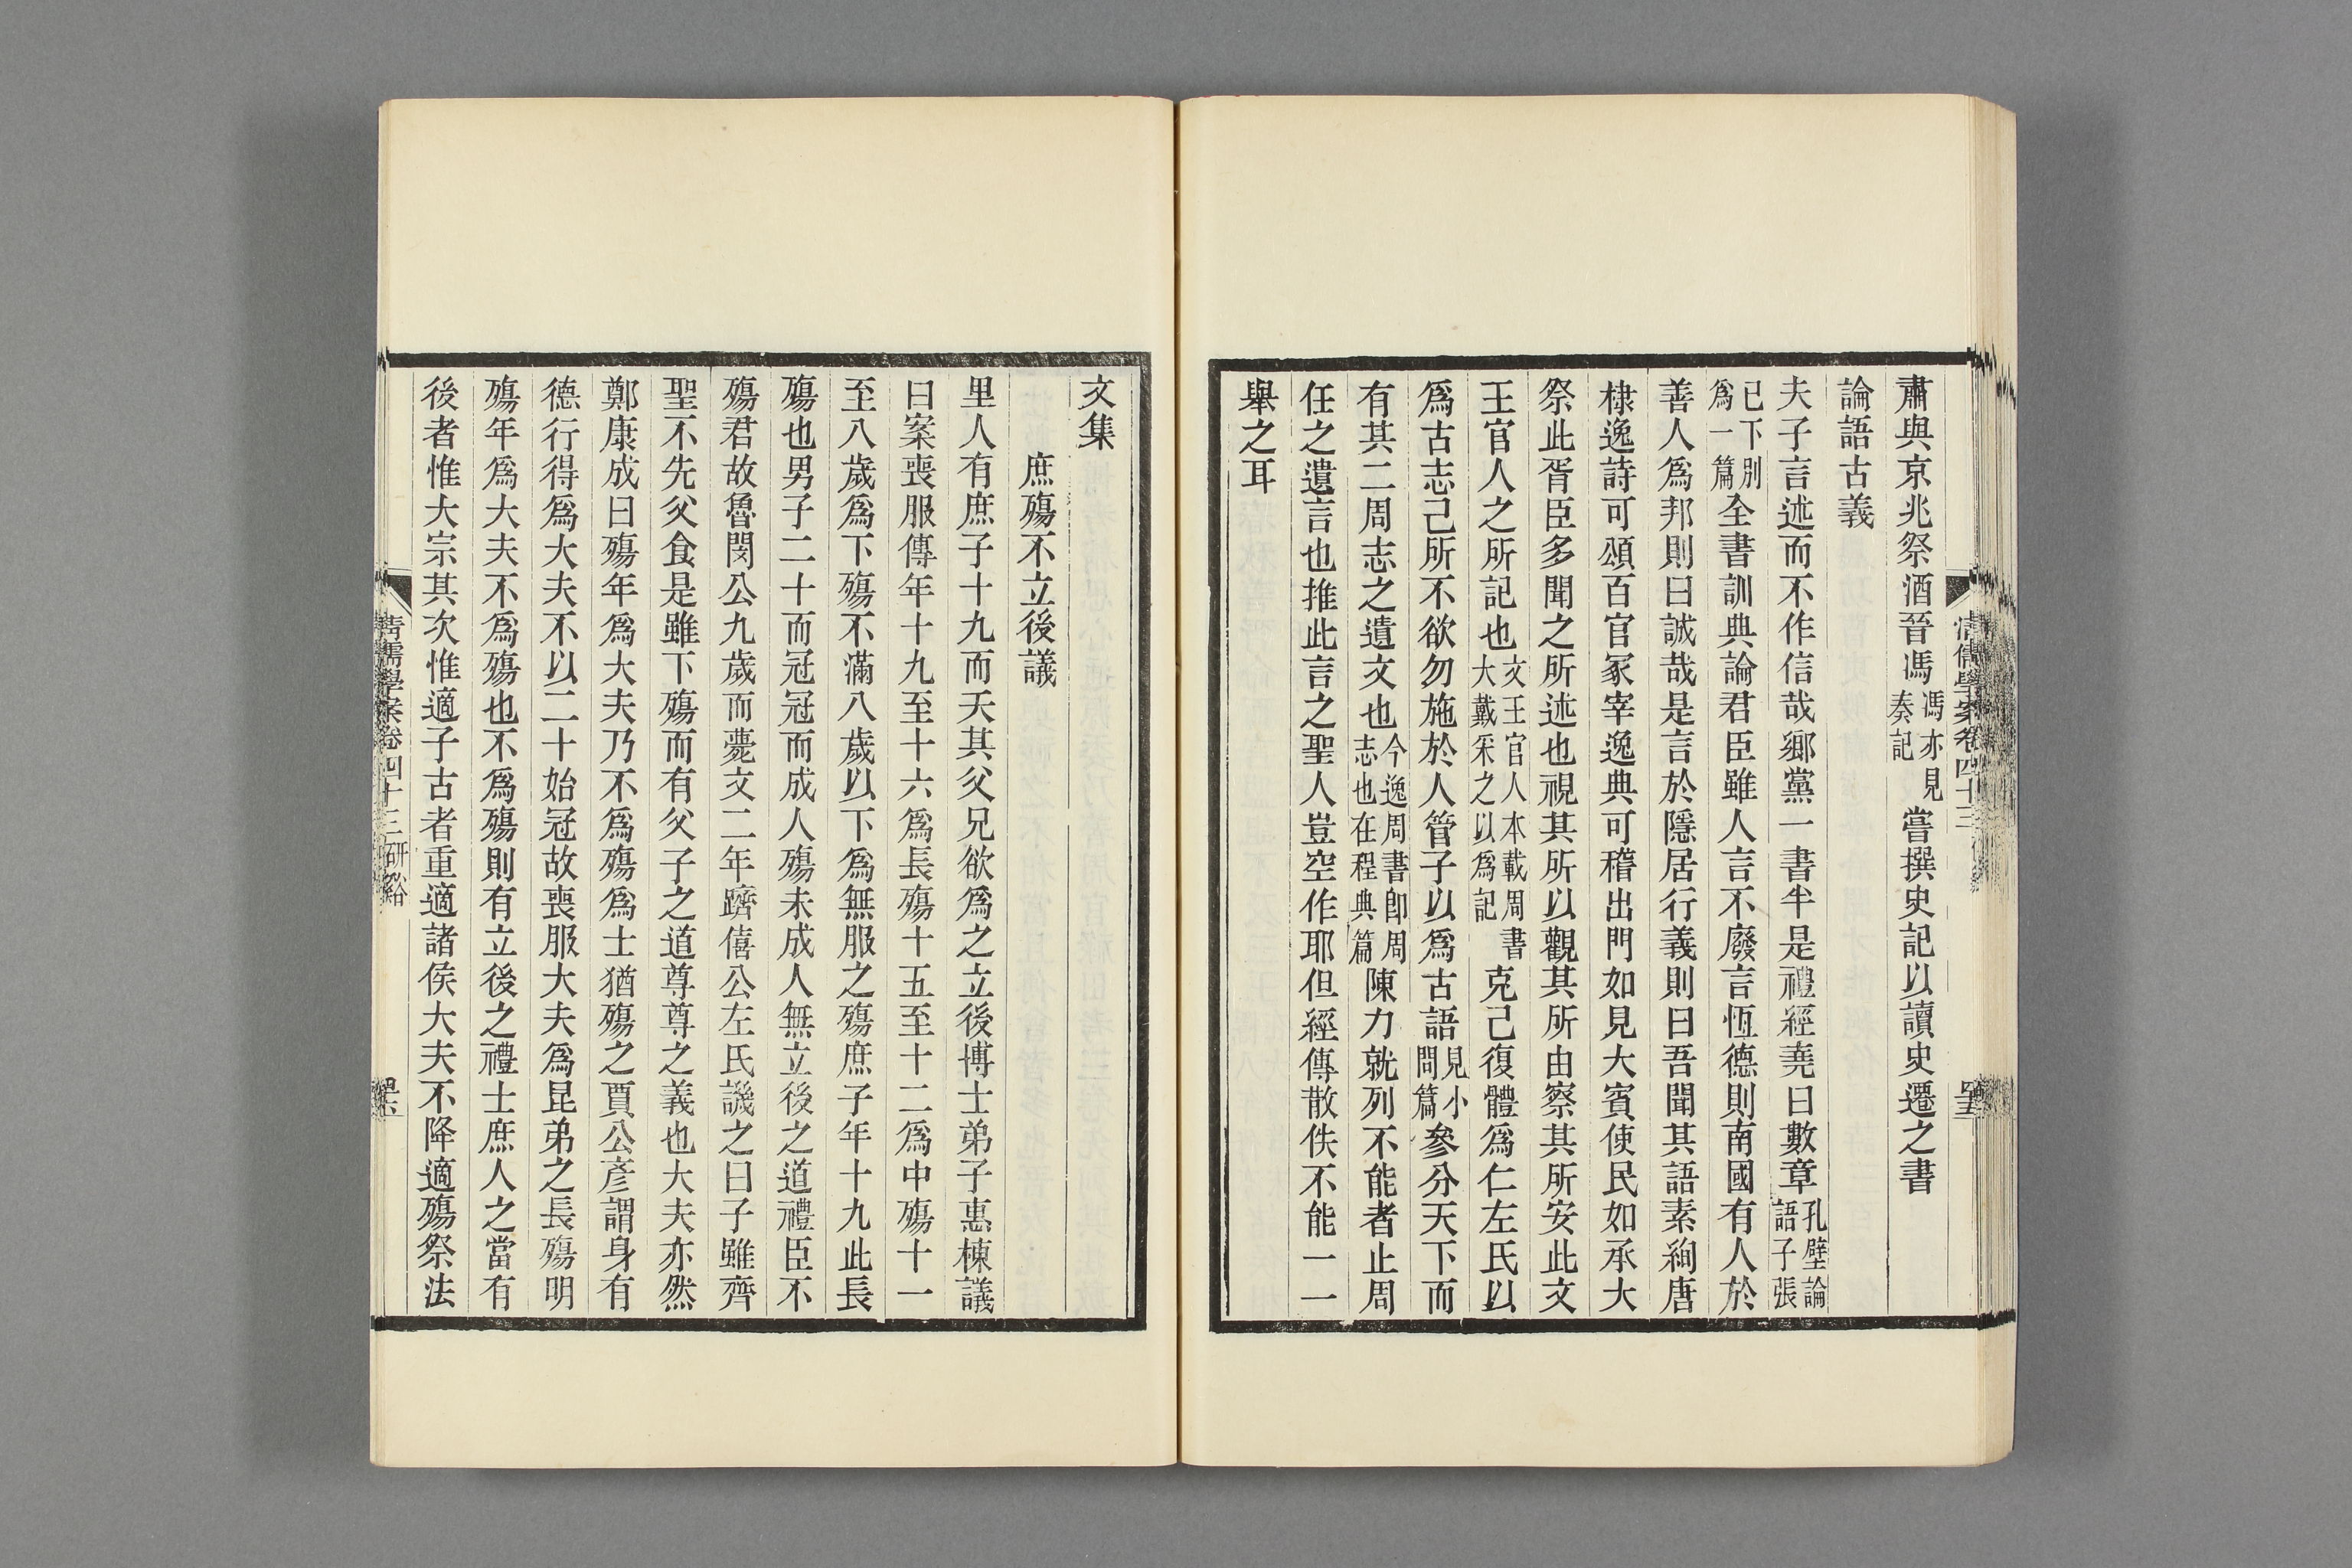 肅與京兆祭酒晉馮馮亦見奏記嘗撰史記以讀史遷之書
論語古義
夫子言述而不作信哉鄉黨一書半是禮經堯曰數章孔壁論語子張
已下別爲一篇全書訓典論君臣雖人言不廢言恆德則南國有人於
善人爲邦則曰誠哉是言於隱居行義則曰吾聞其語素絢唐
棣逸詩可頌百官冢宰逸典可稽出門如見大賓使民如承大
祭此胥臣多聞之所述也視其所以觀其所由察其所安此文
王官人之所記也文王官人本載周書大戴采之以爲記克己復體爲仁左氏以
爲古志己所不欲勿施於人管子以爲古語見小問篇參分天下而
有其二周志之遺文也今逸周書卽周志也在程典篇陳力就列不能者止周
任之遺言也推此言之聖人豈空作耶但經傳散佚不能一一
舉之耳
文集
庶殤不立後議
里人有庶子十九而夭其父兄欲爲之立後博士弟子惠棟議
曰案喪服傳年十九至十六爲長殤十五至十二爲中殤十一
至八歲爲下殤不滿八歲以下爲無服之殤庶子年十九此長
殤也男子二十而冠冠而成人殤未成人無立後之道禮臣不
殤君故魯閔公九歲而薨文二年躋僖公左氏譏之曰子雖齊
聖不先父食是雖下殤而有父子之道尊尊之義也大夫亦然
鄭康成曰殤年爲大夫乃不爲殤爲士猶殤之賈公彥謂身有
德行得爲大夫不以二十始冠故喪服大夫爲昆弟之長殤明
殤年爲大夫不爲殤也不爲殤則有立後之禮士庶人之當有
後者惟大宗其次惟適子古者重適諸侯大夫不降適殤祭法
清儒學案卷四十三 研谿